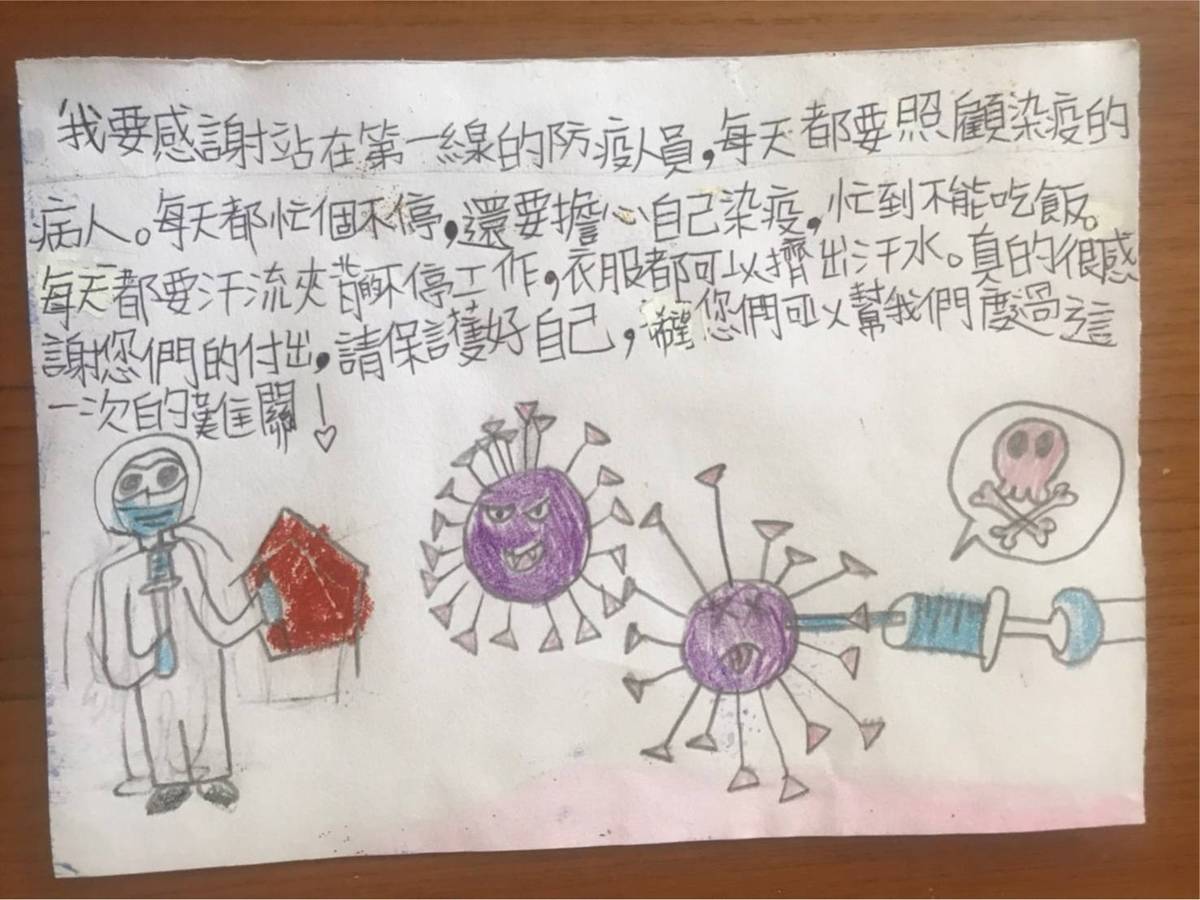 我要感謝站在第一線的防疫人員,每天都要照顧染疫的
病人。每天都忙個不停,還要擔心自己染疫,忙到不能吃飯。
每天都要汗流夾背的不停工作,衣服都可以擠出汗水。真的很感
謝您們的付出,請保護好自己,希望您們可以幫我們度過這
一次的難關